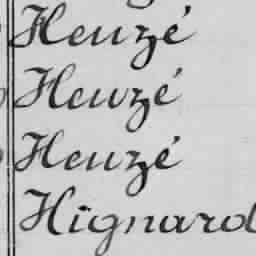 Heuzé
Heuzé
Heuzé
Hignard